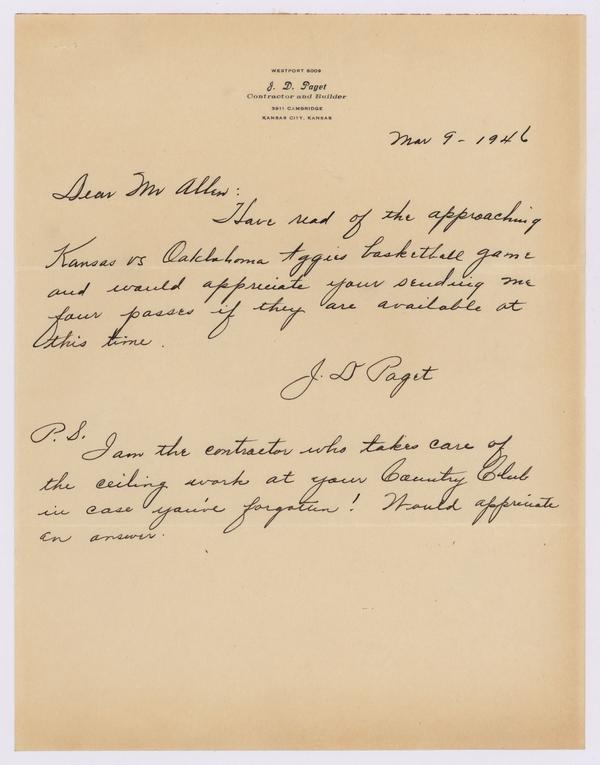 WESTPORT 6009
J. D. Paget
Contractor and Builder
3911 CAMBRIDGE
KANSAS CITY, KANSAS
Mar 9 - 1946
Dear Mr Allen:
Have read of the approaching
Kansas vs Oaklahoma Aggies basketball game
and would appreciate your sending me
four passes if they are available at
this time.
J. D Paget
P.S.
I am the contractor who takes care of
the ceiling work at your Country Club
in case you've forgotten! Would appriciate
an answer.